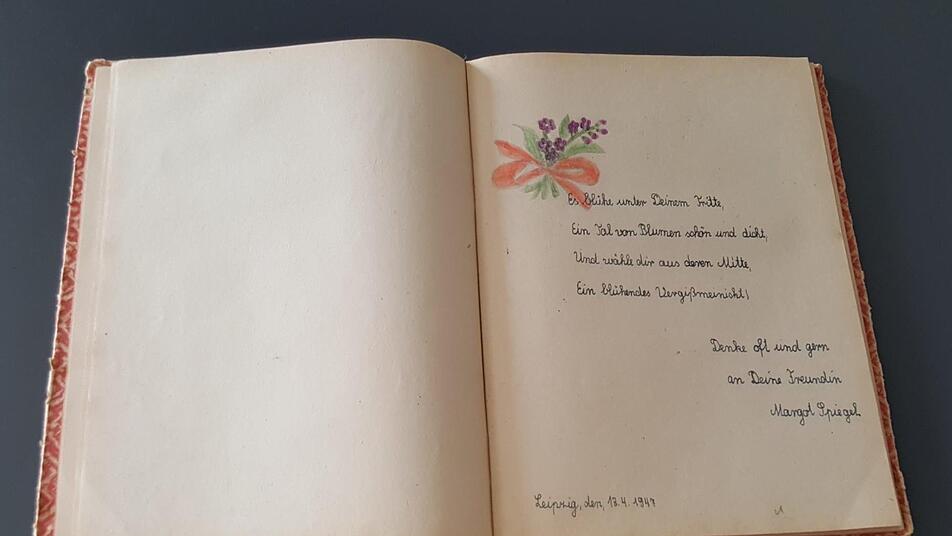 Es blühe unter Deinem Tritte,
Ein Tal von Blumen schön und dicht,
Und wähle dir aus deren Mitte,
Ein blühendes Vergißmeinicht!
Denke oft und gern
an Deine Freundin
Margot Spiegel.
Leipzig, den, 13.4.1947